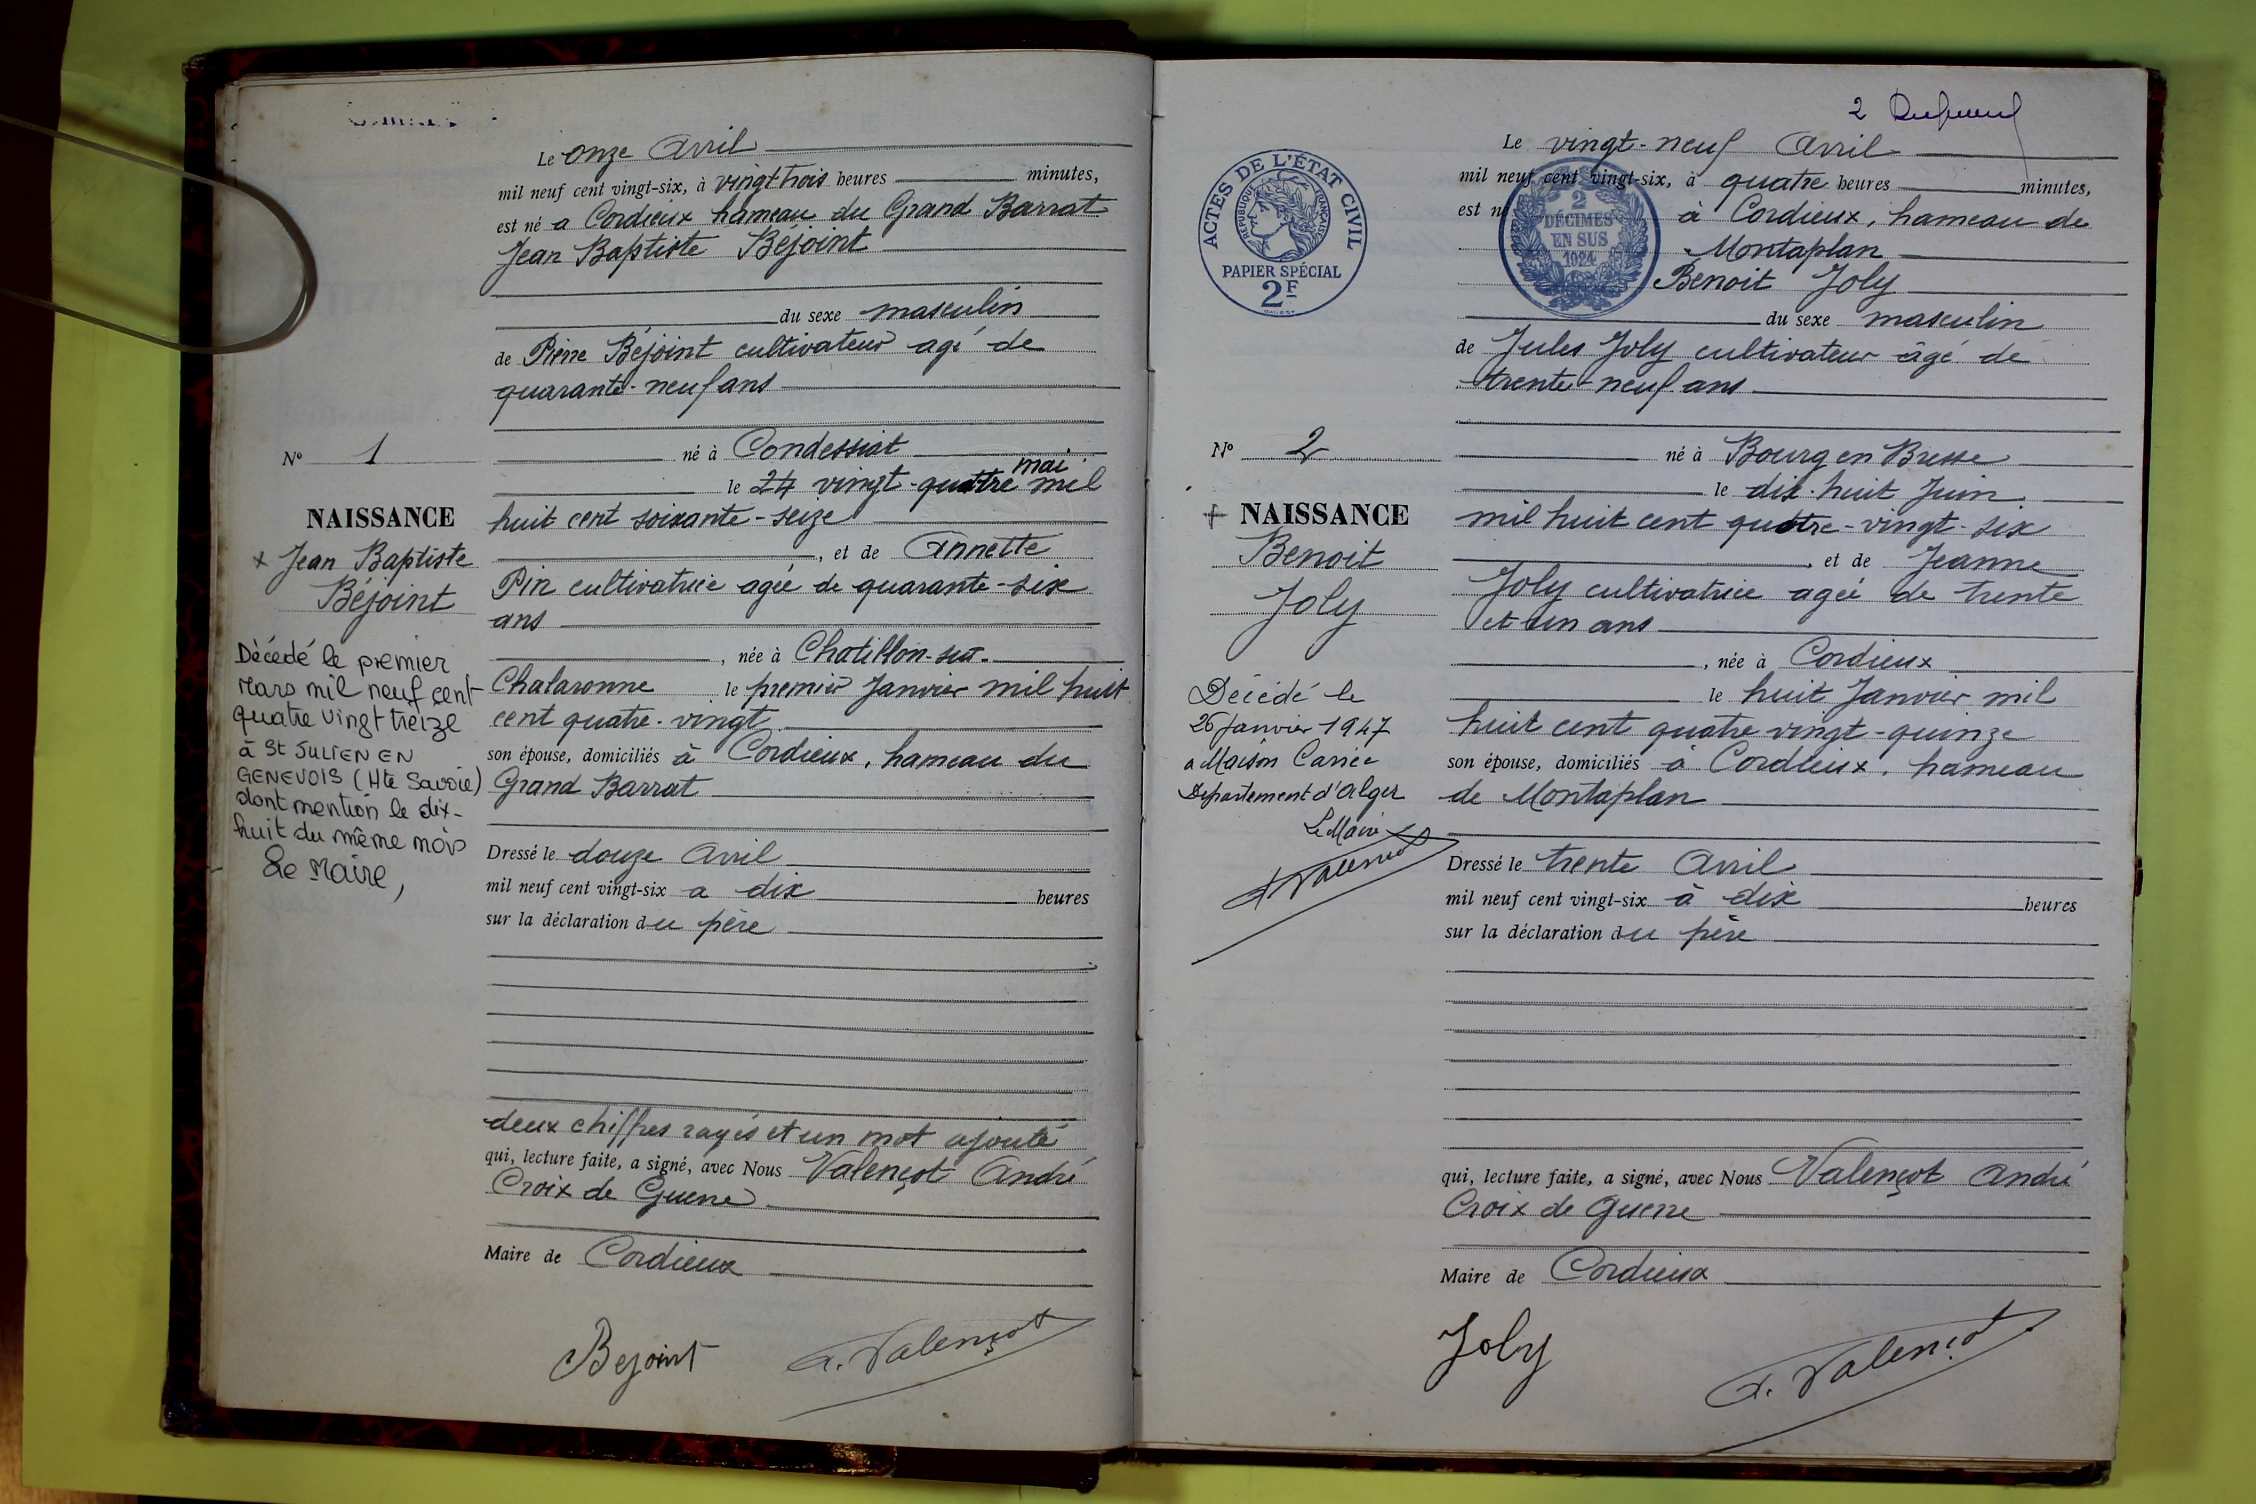 Le onze Avril
mil neuf cent vingt-six, à vingt trois heures minutes,
est né a Cordieux hameau du Grand Barrat
Jean Baptiste Béjoint
du sexe masculin
de Pierre Béjoint cultivateur agé de
quarante-neuf ans
né à Condessiat
mai
le 24 vingt-quatre mil
huit cent soixante-seize
, et de Annette
Pin cultivatrice agée de quarante-six
ans
, née à Chatillon-sur-
Chalaronne le premier Janvier mil huit
cent quatre-vingt
son épouse, domiciliés à Cordieux, hameau du
Grand Barrat
Dressé le douze Avril
mil neuf cent vingt-six a dix heures
sur la déclaration du père
deux chiffres rayés et un mot ajouté
qui, lecture faite, a signé, avec Nous Valençot André
Croix de Guerre
Maire de Cordieux
Bejoint A. Valençot
N° 1
NAISSANCE
x Jean Baptiste
Béjoint
Décédé le premier
Mars mil neuf cent
quatre vingt treize
à St JULIEN EN
GENEVOIS (Hte Savoie)
dont mention le dix-
huit du même mois
Le Maire,
2
ACTES DE L'ÉTAT CIVIL
RÉPUBLIQUE FRANÇAISE
PAPIER SPÉCIAL
2F
2
DÉCIMES
EN SUS
1924
Le vingt-neuf Avril
mil neuf cent vingt-six, à quatre heures minutes,
est né à Cordieux, hameau de
Montaplan
Benoit Joly
du sexe masculin
de Jules Joly cultivateur âgé de
trente-neuf ans
né à Bourg en Bresse
le dix-huit Juin
mil huit cent quatre-vingt-six
, et de Jeanne
Joly cultivatrice agée de trente
et un ans
, née à Cordieux
le huit Janvier mil
huit cent quatre vingt-quinze
son épouse, domiciliés à Cordieux, hameau
de Montaplan
Dressé le trente Avril
mil neuf cent vingt-six à dix heures
sur la déclaration du père
qui, lecture faite, a signé, avec Nous Valençot André
Croix de Guerre
Maire de Cordieux
Joly A. Valençot
N° 2
NAISSANCE
Benoit
Joly
Décédé le
26 Janvier 1947
a Maison Carrée
Département d'Alger
Le Maire
A. Valençot